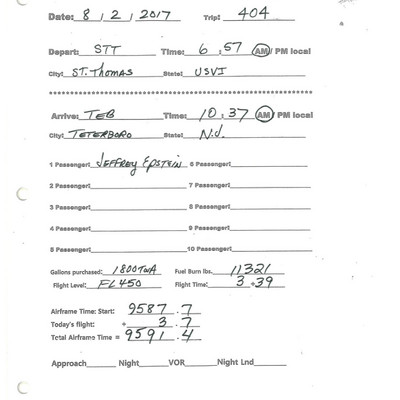 Date: 8 / 2 / 2017 Trip: 404
Depart: STT Time: 6 : 57 AM / PM local
City: ST. THOMAS State: USVI
Arrive: TEB Time: 10 : 37 AM / PM local
City: TETERBORO State: N.J.
1 Passenger: JEFFREY EPSTEIN 6 Passenger:
2 Passenger: 7 Passenger:
3 Passenger: 8 Passenger:
4 Passenger: 9 Passenger:
5 Passenger: 10 Passenger:
Gallons purchased: 1800 TWA Fuel Burn lbs. 11321
Flight Level: FL450 Flight Time: 3 + 39
Airframe Time: Start: 9587 . 7
Today's flight: + 3 . 7
Total Airframe Time = 9591 . 4
Approach Night VOR Night Lnd